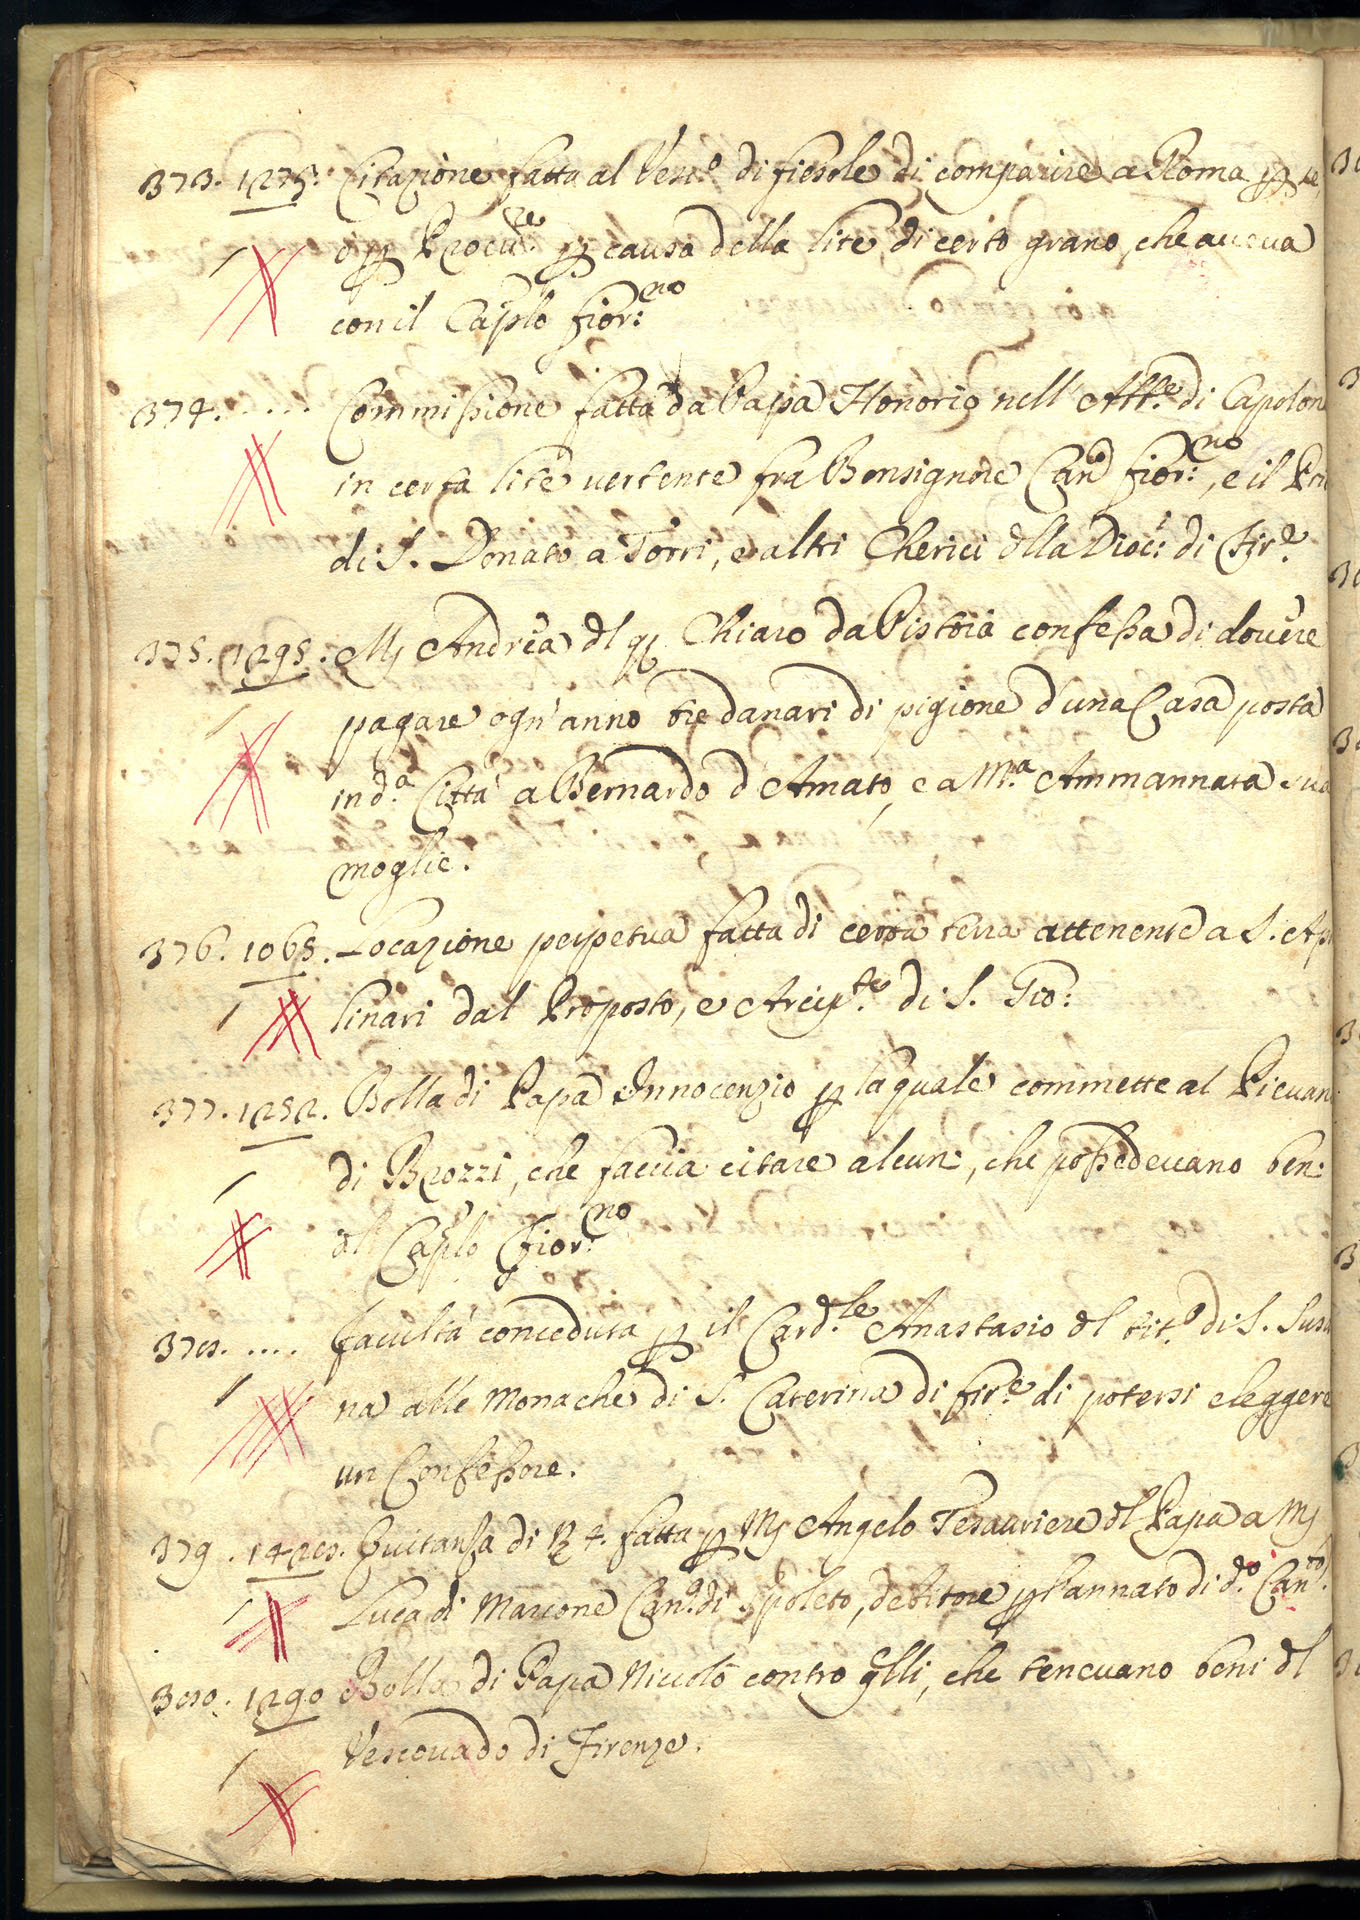 373. 1275. Citazione fatta al Vesc.o di fiesole di comparire a Roma p se,
o p Procu.re p causa della lite di certo grano, che aueua
con il Caplo fior:no
374. ..... Commissione fatta da Papa Honorio nell' Abb.e di Capolon
in certa lite uertente fra Bonsignore Can.o fior:no, e il Pri
di S. Donato a Torri, e altri Cherici dlla Dioc: di Fir.e
375. 1295. Mr Andrea dl q Chiaro da Pistoia confessa di douere
pagare ogn' anno tre danari di pigione d'una Casa posta
in d.a Città a Bernardo d'Amato, e a M.a Ammannata sua
moglie.
376. 1065. Locazione perpetua fatta di certa terra attenente a S. Apo
linari dal Proposto, e Arcip.te di S. Gio:
377. 1252. Bolla di Papa Innocenzio p la quale commette al Pieuan
di Brozzi, che faccia citare alcuni, che possedeuano beni
dl Caplo Fior:no
378. .... facultà conceduta p il Card.le Anastasio dl tit.o di S. Susa
na alle Monache di S. Caterina di fir.e di potersi eleggere
un Confessore.
379. 1428. Quitanza di 4. fatta p Mr Angelo Tesauriere dl Papa a Mr
Luca di Marione Can.o di Spoleto, debitore p l'annato di d.o Can.to
380. 1290 Bolla di Papa Niccolò contro qlli, che teneuano beni dl
Vescouado di Firenze.